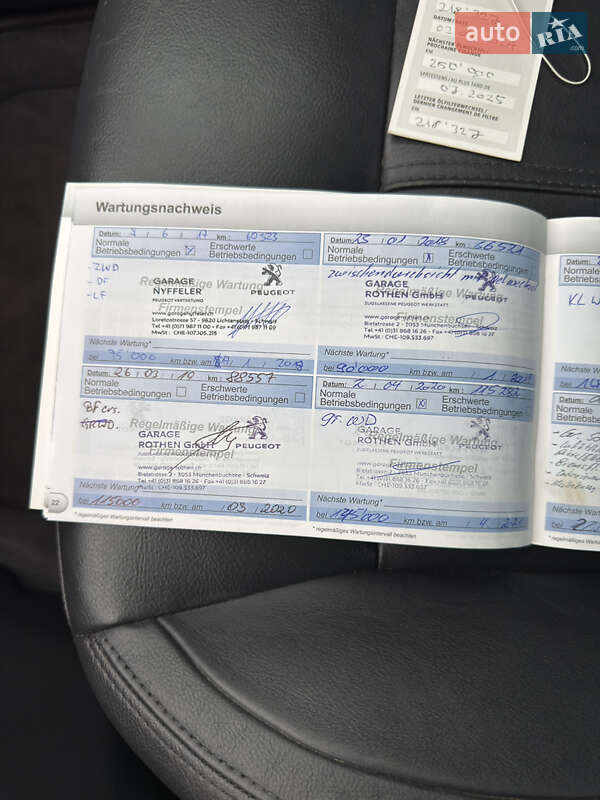 218'327
DATUM/DATE
NÄCHSTER ÖLWECHSEL
PROCHAINE VIDANGE
KM
250'000
SPÄTESTENS/AU PLUS TARD DE
07.2025
LETZTER ÖLFILTERWECHSEL/
DERNIER CHANGEMENT DE FILTRE
KM
218'327
auto RIA .com
Wartungsnachweis
Datum: 7 | 6 | 17 km: 10323
Normale Betriebsbedingungen ☒ Erschwerte Betriebsbedingungen ☐
- ZWD
- ÖF
- LF
Regelmäßige Wartung
GARAGE
NYFFELER
PEUGEOT VERTRETUNG
PEUGEOT
Firmenstempel
www.garagenyffeler.ch
MwSt.: CHE-107.305.215
Nächste Wartung*
bei 95'000 km bzw. am 1 | 2018
Datum: 23 | 01 | 2018 km: 66521
Normale Betriebsbedingungen ☒ Erschwerte Betriebsbedingungen
Regelmäßige Wartung
GARAGE
ROTHEN GmbH
ZUGELASSENE PEUGEOT WERKSTATT
PEUGEOT
Firmenstempel
www.garage-rothen.ch
Bielstrasse 2 - 3053 Münchenbuchsee - Schweiz
Tel +41 (0)31 868 16 26 - Fax +41 (0)31 868 16 27
MwSt.: CHE-109.533.697
Nächste Wartung*
bei 90'000 km bzw. am 1
Datum: 26 | 03 | 19 km: 88557
Normale Betriebsbedingungen ☐ Erschwerte Betriebsbedingungen ☐
Regelmäßige Wartung
GARAGE
ROTHEN GmbH
PEUGEOT
Firmenstempel
www.garage-rothen.ch
Bielstrasse 2 - 3053 Münchenbuchsee - Schweiz
Tel +41 (0)31 868 16 26 - Fax +41 (0)31 868 16 27
MwSt.: CHE-109.533.697
Nächste Wartung*
bei 115000 km bzw. am 03 | 2020
Datum: 2 | 04 | 2020 km: 115282
Normale Betriebsbedingungen ☒ Erschwerte Betriebsbedingungen ☐
Regelmäßige Wartung
GARAGE
ROTHEN GmbH
ZUGELASSENE PEUGEOT WERKSTATT
PEUGEOT
Firmenstempel
www.garage-rothen.ch
Bielstrasse 2 - 3053 Münchenbuchsee - Schweiz
Tel +41 (0)31 868 16 26 - Fax +41 (0)31 868 16 27
MwSt.: CHE-109.533.697
Nächste Wartung*
bei 145'000 km bzw. am 4
22
* regelmäßiges Wartungsintervall beachten
* regelmäßiges Wartungsintervall beachten